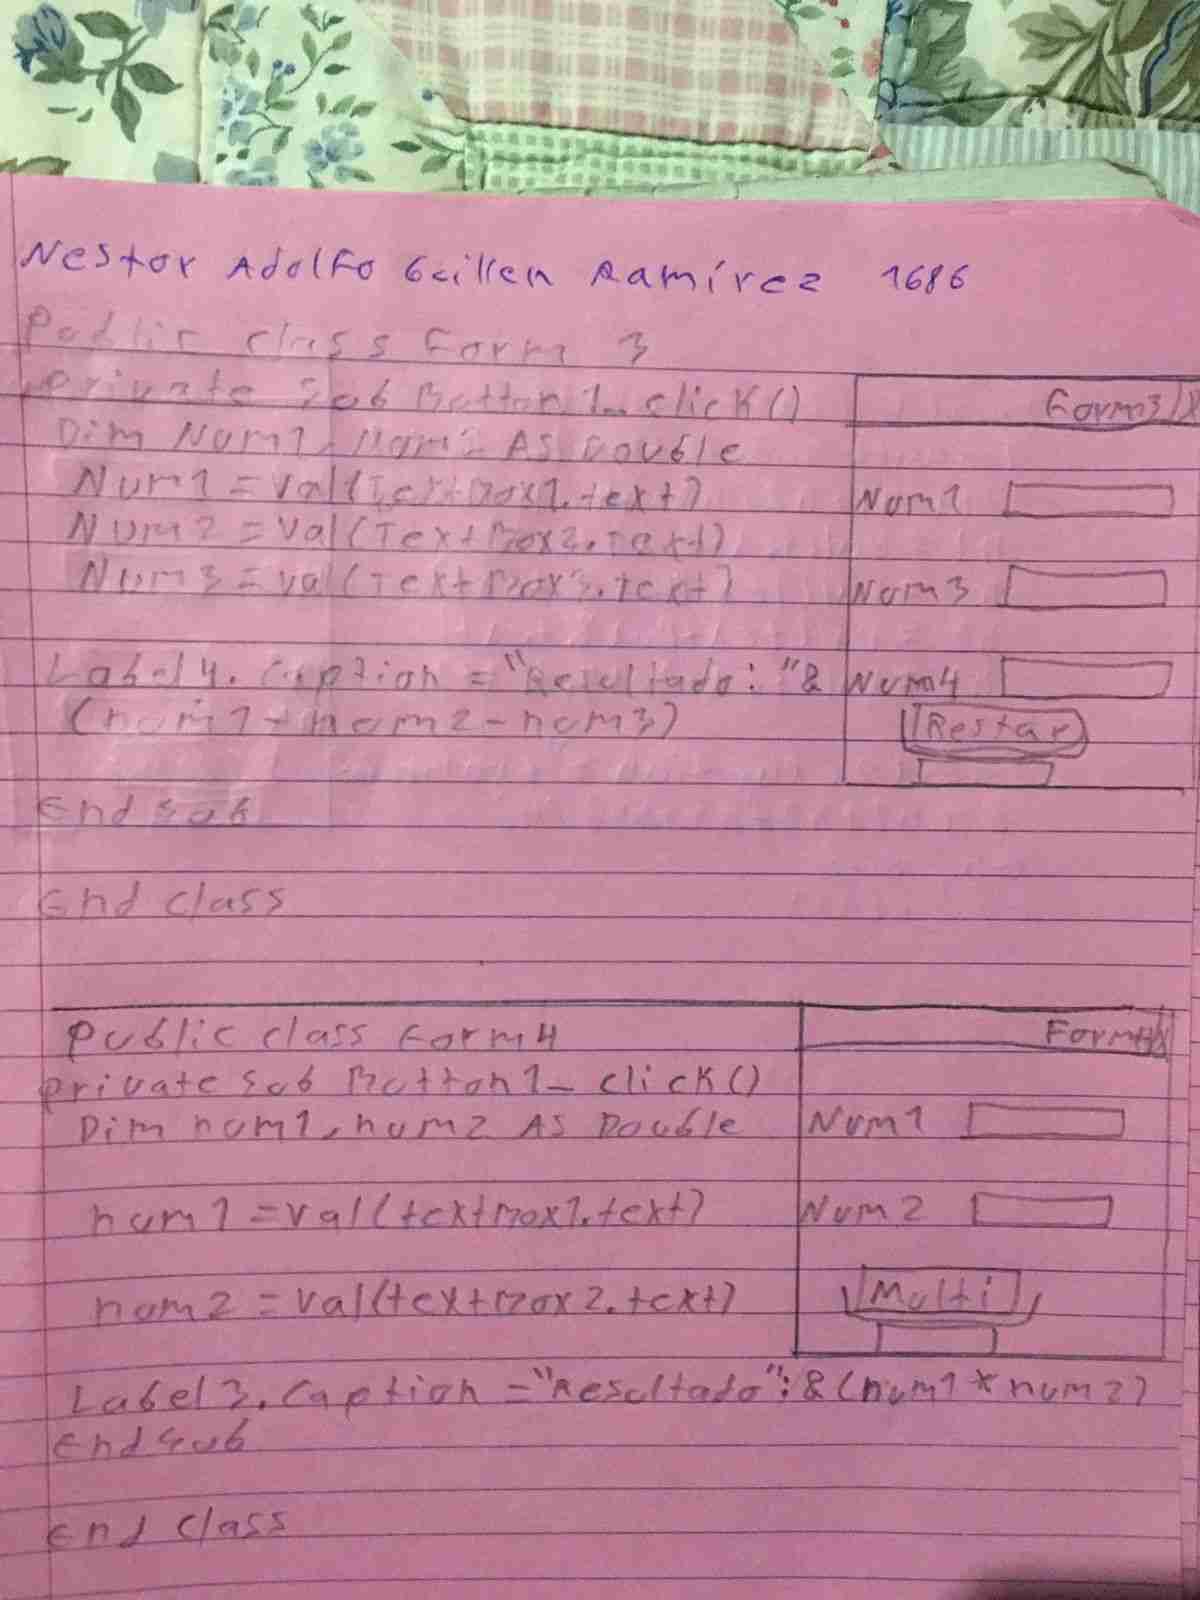 Nestor Adolfo Guillen Ramírez 1686
Public class Form 3
private Sub Button1_click()
Form3 X
Dim Num1, Num2 As Double
Num1 = val(TextBox1.text)
Num1
Num2 = val(TextBox2.Text)
Num3 = val(TextBox3.text)
Num3
Label4.Caption = "Resultado: "&
Num4
(num1-num2-num3)
Restar
End Sub
End class
Public class Form4
Form4 X
private Sub Button1_click()
Dim num1, num2 As Double
Num1
num1 = val(textBox1.text)
Num2
num2 = val(textBox2.text)
Multi
Label3.Caption = "Resultado": & (num1 * num2)
End Sub
End class